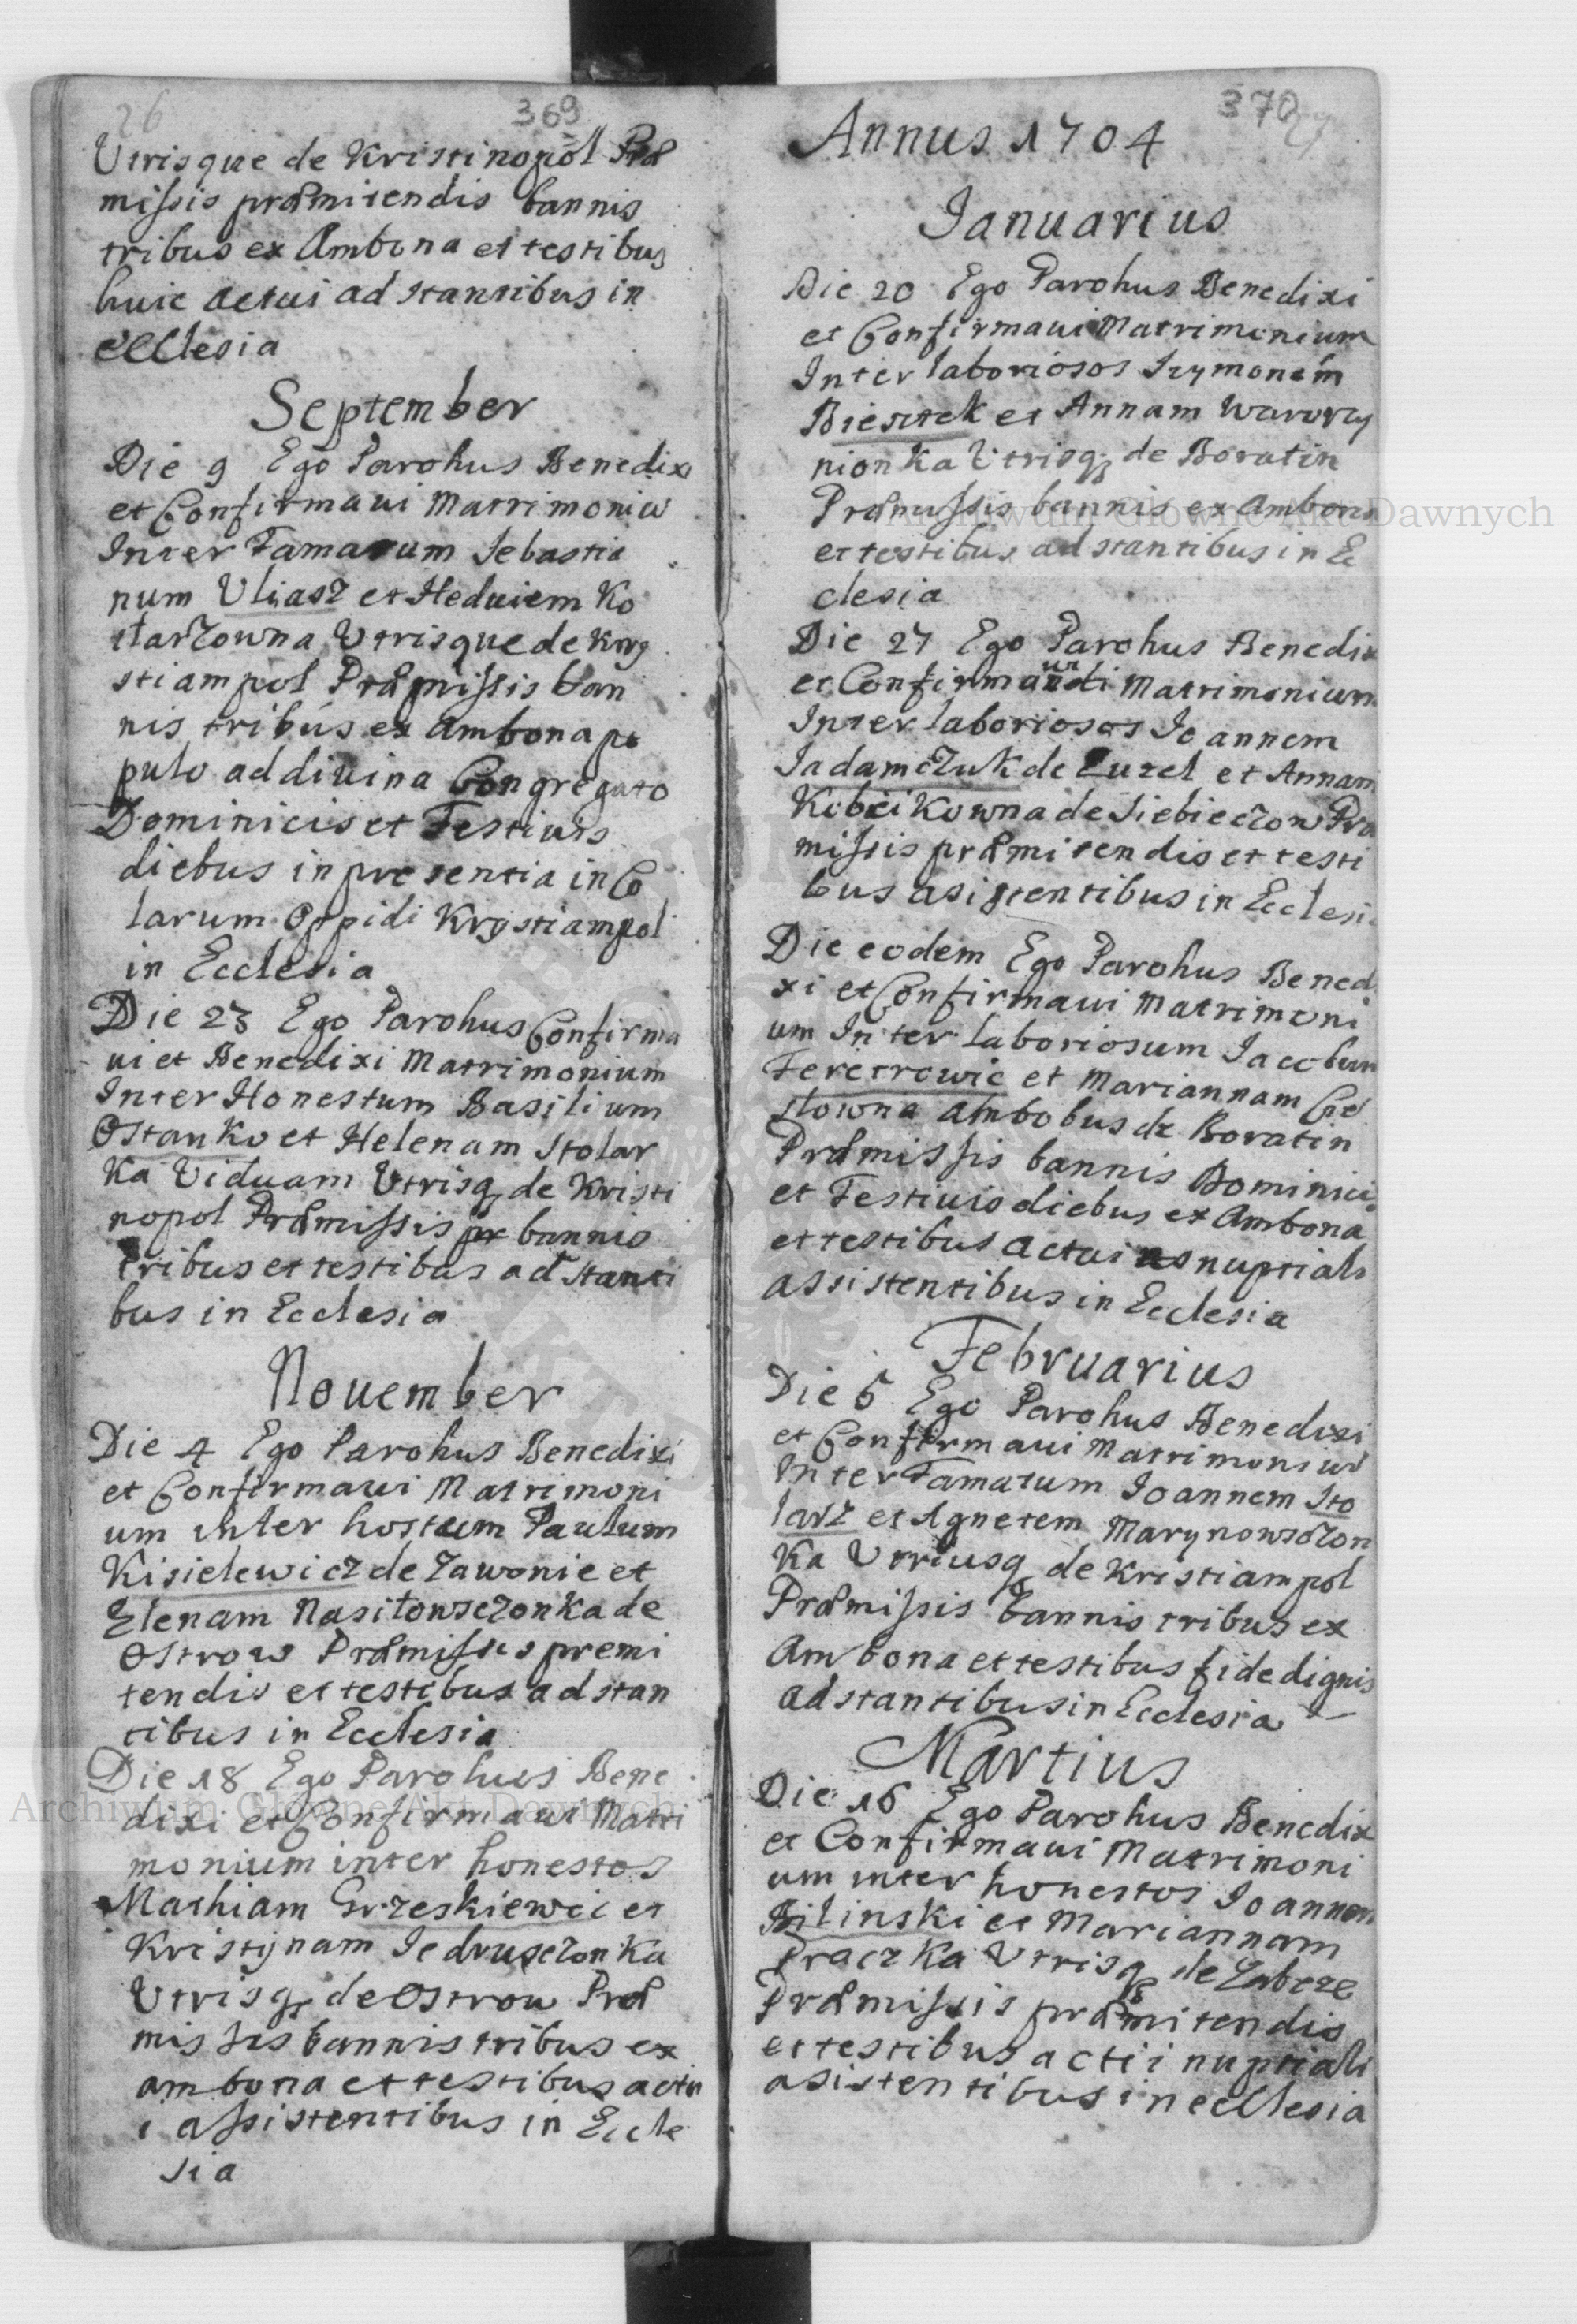 26
369
Utrisque de Kristinopol Præ
missis præmitendis bannis
tribus ex Ambona et testibus
huic actui ad stantibus in
ecclesia
September
Die 9 Ego Parohus Benedixi
et Confirmaui Matrimoniū
Inter Famatum Sebastia
num Uliasz et Heduiem Ko
starzowna Utrisque de Kry
stiampol Præmissis ban
nis tribus ex Ambona po
pulo ad diuina Congregato
Dominicis et Festiuis
diebus in presentia inCo
larum Oppidi Krystiampol
in Ecclesia
Die 23 Ego Parohus Confirma
ui et Benedixi Matrimonium
Inter Honestum Basilium
Ostanko et Helenam Stolar
ka Viduam Utrisq de Kristi
nopol Præmissis pr bannis
tribus et testibus ad stanti
bus in Ecclesia
Nouember
Die 4 Ego Parohus Benedixi
et Confirmaui Matrimoni
um inter hostum Paulum
Kisielewicz de Zawonie et
Elenam Nasitowsczonka de
Ostrow Præmissis premi
tendis et testibus ad stan
tibus in Ecclesia
Die 18 Ego Parohus Bene
dixi et Confirmaui Matri
monium inter honestos
Mathiam Grzeskiewic et
Kristynam Jedrusczonka
Utrisq de Ostrow Præ
missis bannis tribus ex
ambona et testibus actu
i assistentibus in Eccle
sia
370
27
Annus 1704
Ianuarius
Die 20 Ego Parohus Benedixi
et Confirmaui Matrimonium
Inter laboriosos Szymonem
Biestek et Annam Wawrzy
nionka Utrisq de Boratin
Præmissis bannis ex Ambona
et testibus ad stantibus in Ec
clesia
Die 27 Ego Parohus Benedix
et Confirmaui Matrimonium
Inter laboriosos Joannem
Jadamczuk de Euzel et Annam
Kobcikowna de Siebieczow Præ
missis præmitendis et testi
bus asistentibus in Ecclesi
Die eodem Ego Parohus Bened
xi et Confirmaui Matrimoni
um Inter laboriosum Jacobum
Feretrowic et Mariannam Cie
slowna Ambobus de Boratin
Præmissis bannis Dominici
et Festiuis diebus ex Ambona
et testibus actui nuptiali
assistentibus in Ecclesia
Februarius
Die 6 Ego Parohus Benedixi
et Confirmaui Matrimoniū
Inter Famatum Joannem Sto
larz et Agnetem Marynowsczon
ka Utriusq de Kristiampol
Præmissis bannis tribus ex
Ambona et testibus fide dignis
ad stantibus in Ecclesia
Martius
Die 16 Ego Parohus Benedix
et Confirmaui Matrimoni
um inter honestos Joannem
Bilinski et Mariannam
Praczka Utrisq de Zabcze
Præmissis præmitendis
et testibus actii nuptiali
asistentibus in ecclesia
Archiwum Główne Akt Dawnych
Archiwum Główne Akt Dawnych